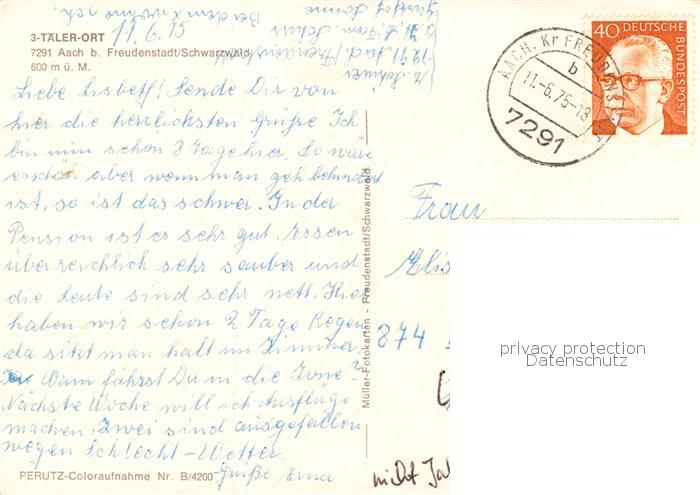 3-TÄLER-ORT
7291 Aach b. Freudenstadt/Schwarzwald
600 m ü. M.
11.6.75
Liebe Lisbeth! Sende Dir von
hier die herzlichsten Grüße Ich
bin nun schon 8 Tage hier. So wäre
es schön aber wenn man geh behindert
ist, so ist das schwer. In der
Pension ist es sehr gut Essen
überreichlich sehr sauber und
die Leute sind sehr nett. Hier
haben wir schon 2 Tage Regen
da sitzt man halt im Zimmer
Wann fährst Du in die Zone?
Nächste Woche will ich Ausflüge
machen. Zwei sind ausgefallen
wegen Schlecht-Wetter.
Grüße Erna
PERUTZ-Coloraufnahme Nr. B/4200
Müller-Fotokarten - Freudenstadt/Schwarzwald
AACH, Kr FREUDENST
b
11.-6.75-18
7291
40 DEUTSCHE
BUNDESPOST
Frau
Elis
874
nicht
privacy protection
Datenschutz